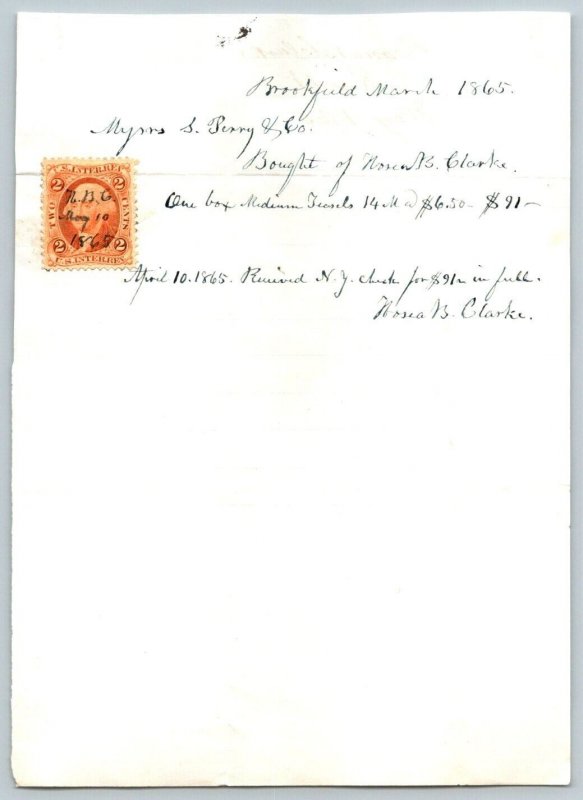 Brookfield March 1865.
Myrrs S. Perry & Co.
Bought of Hosea B. Clarke.
One box Medium Teasels 14 M @ $6.50 - $91 -
U.S. INTER. REV.
2 2
H.B.C.
TWO CENTS
May 10
1865
2 2
U.S. INTER. REV.
April 10. 1865. Received N.Y. check for $91 in full.
Hosea B. Clarke.